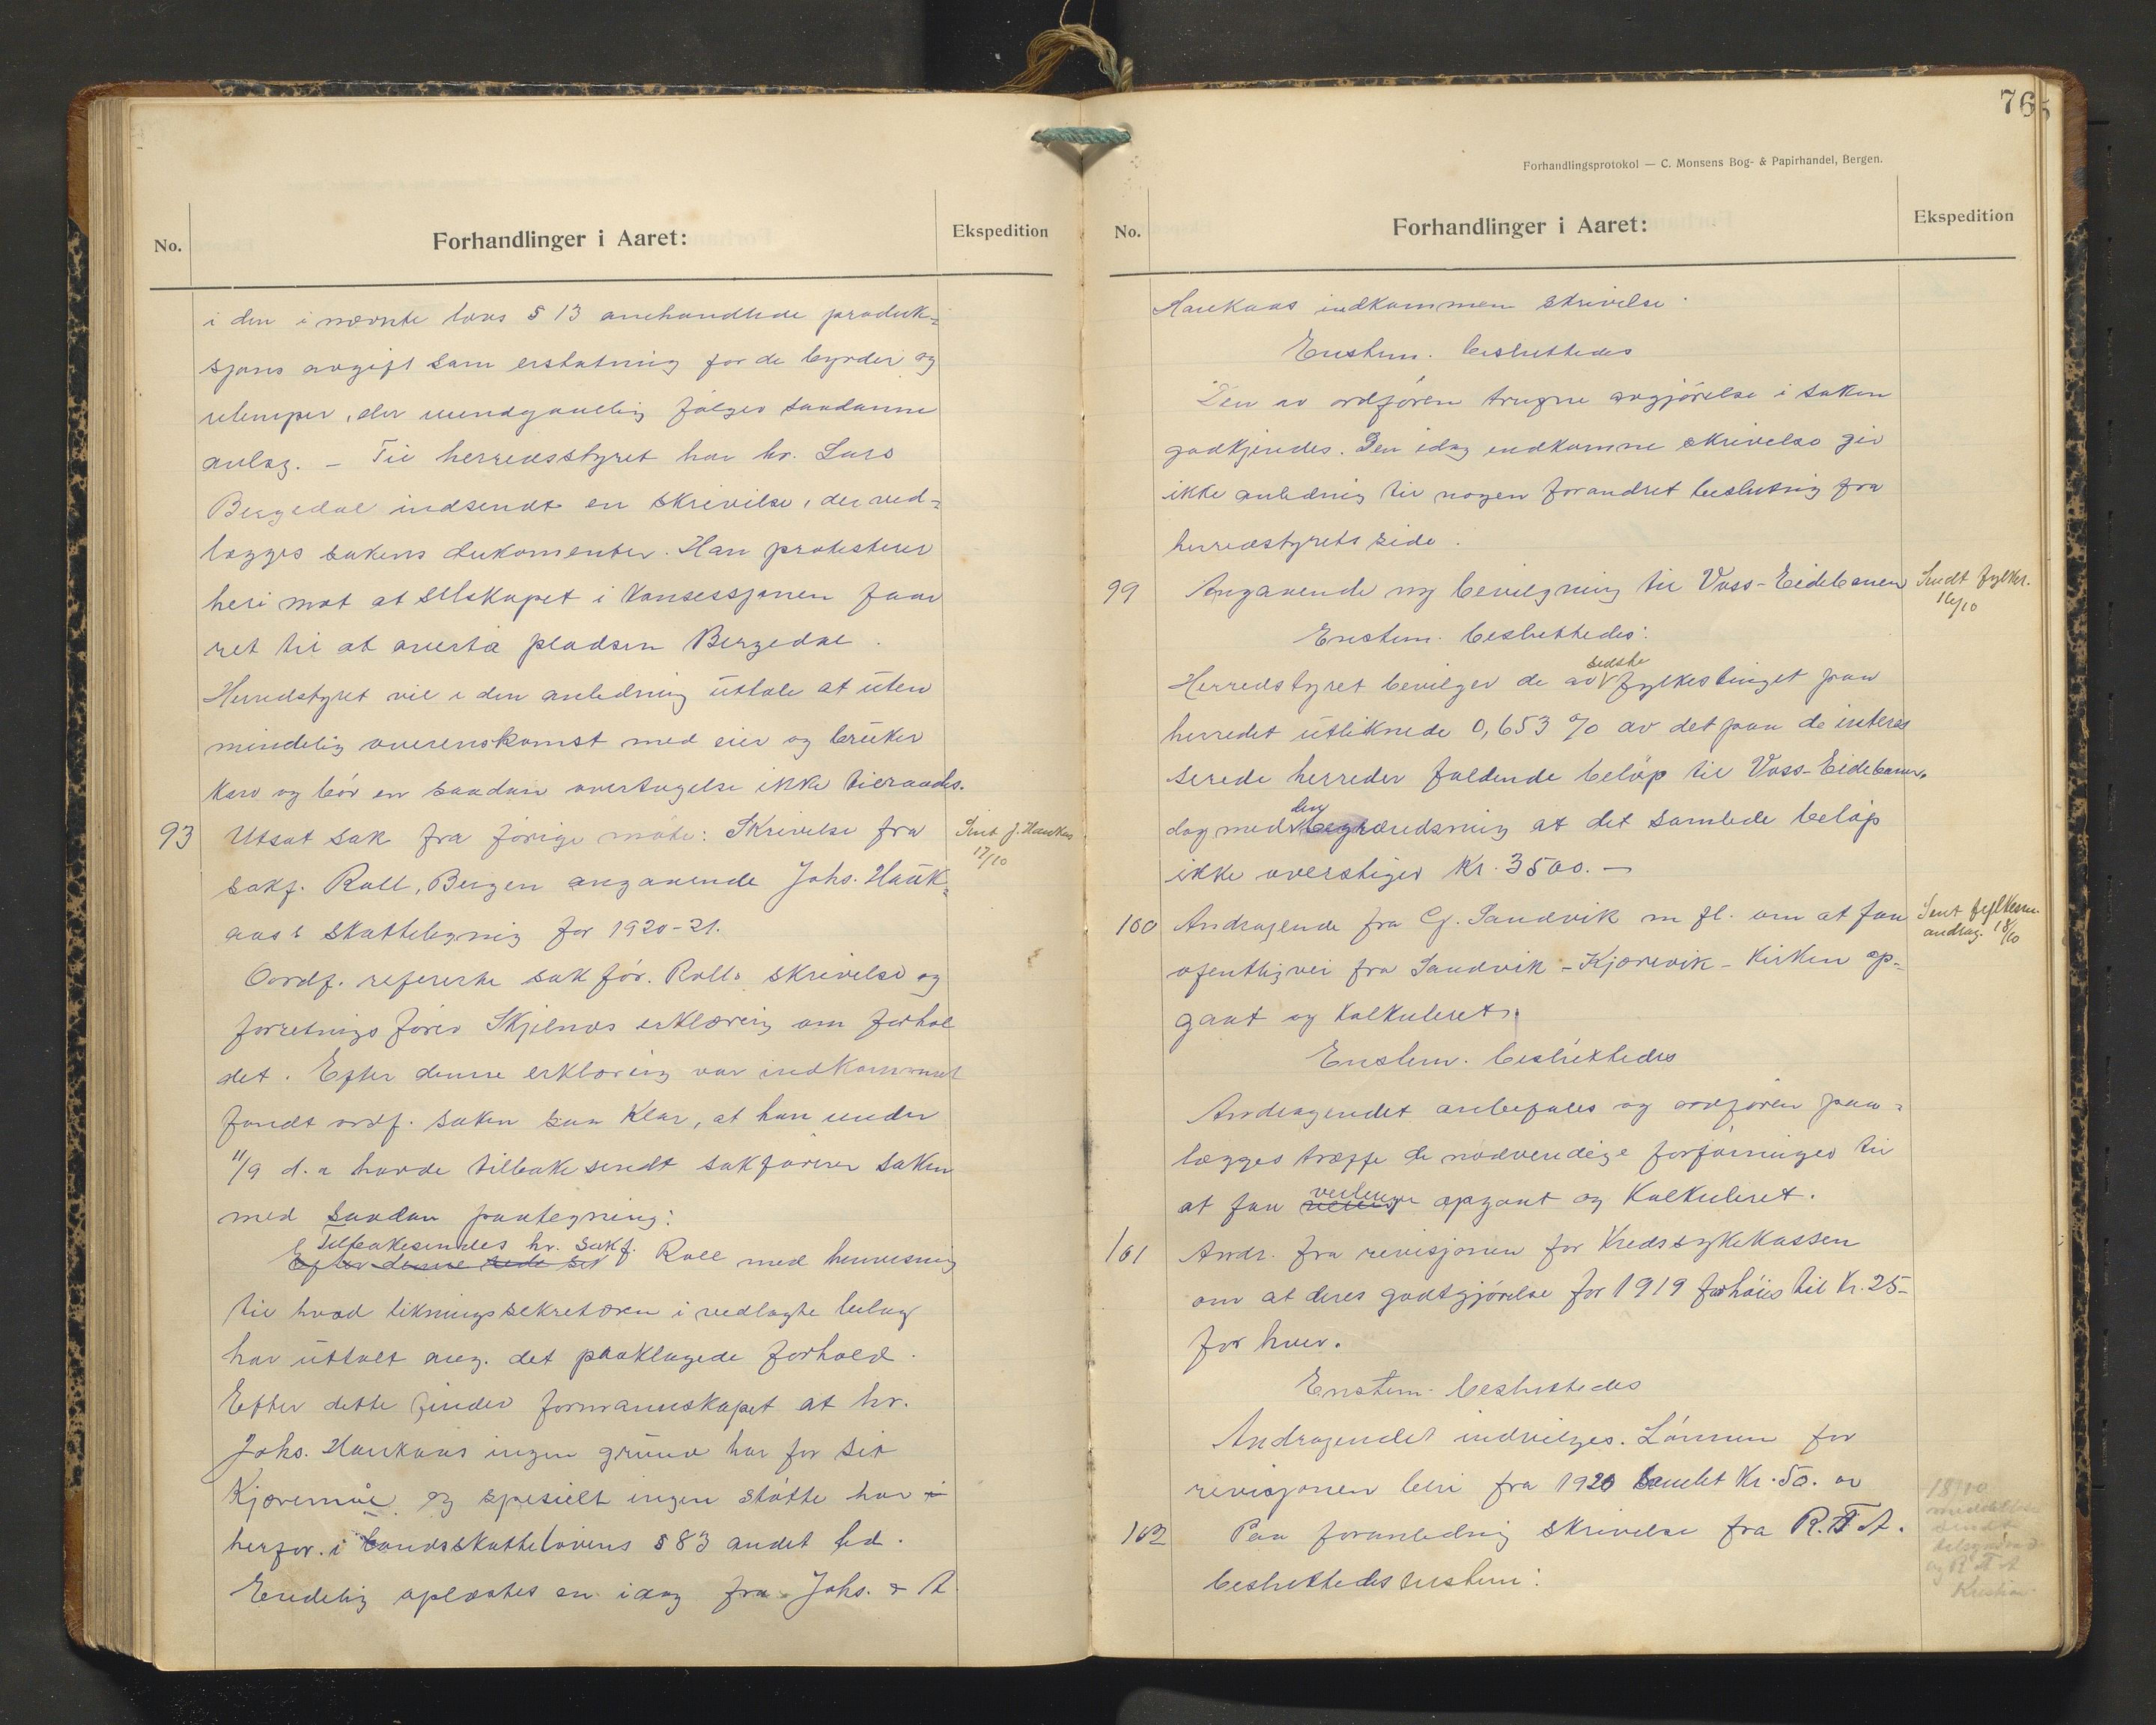 No.
Forhandlinger i Aaret:
Ekspedition
i den i nævnte lovs § 13 omhandlede produk=
sjons avgift som erstatning for de byrder og
ulemper, der uundgaaelig følger saadanne
anlæg. – Til herredsstyret har hr. Lars
Bergedal indsendt en skrivelse, der ved=
lægges sakens dokumenter. Han protesterer
heri mot at selskapet i konsessjonen faar
ret til at overta pladsen Bergedal.
Herredstyret vil i den anledning uttale at uten
mindelig overenskomst med eier og bruker
kan og bør en saadan overtagelse ikke tilraades.
93 Utsat sak fra forrige møte: Skrivelse fra
Sent J. Haukaas
17/10
sakf. Roll, Bergen angaaende Johs. Hauk=
aas's skatteligning for 1920-21.
Oordf. refererte sakfør. Rolls skrivelse og
forretningsfører Skjelnes erklæring om forhol
det. Efter denne erklæring var indkommet
fandt ordf. saken saa klar, at han under
11/9 d.a havde tilbakesendt sakfører saken
med saadan paategning:
Tilbakesendes hr. sakf.
Efter denne rede set Roll med henvisning
til hvad likningssekretæren i vedlagte bilag
har uttalt ang. det paaklagede forhold.
Efter dette finder formannskapet at hr.
Johs. Haukaas ingen grund har for sit
Kjæremål og spesielt ingen støtte har i
herfor i landsskattelovens § 83 andet led.
Endelig oplæstes en idag fra Johs. & A
765
Forhandlingsprotokol — C. Monsens Bog- & Papirhandel, Bergen.
No.
Forhandlinger i Aaret:
Ekspedition
Haukaas indkommen skrivelse.
Enstem. besluttedes
Den av ordføren trufne avgjørelse i saken
godkjendes. Den idag indkomne skrivelse gir
ikke anledning til nogen forandret beslutnig fra
herredstyrets side.
99 Angaaende ny bevilgning til Voss-Eidebanen
Sendt fylker.
16/10
Enstem. besluttedes:
sidste
Herredstyret bevilger de av fylkestinget paa
herredet utliknede 0,653 % av det paa de interes
serede herreder faldende beløp til Voss-Eidebanen,
den
dog med begrændsning at det samlede beløp
ikke overstiger kr. 3500.—
100 Andragende fra Cf. Sandvik m fl. om at faa
Sent fylkesm.
andrag. 18/10
ofentligvei fra Sandvik – Kjærevik – Kirken op=
gaat og kalkuleret.
Enstem. besluttedes
Andragendet anbefales og ordføren paa=
lægges træffe de nødvendige forføininger til
veilengn
at faa opgaat og kalkuleret.
101 Andr. fra revisjonen for Kredssykekassen
om at deres godtgjørelse for 1919 forhøies til kr. 25-
for hver.
Enstem. besluttedes
Andragendet indvilges. Lønnen for
revisjonen blir fra 1920 samlet kr. 50. or
102 Paa foranledning skrivelse fra R. T. A.
besluttedes enstem:
18/10
meddelelse
sendt
og R T A
Kristia.